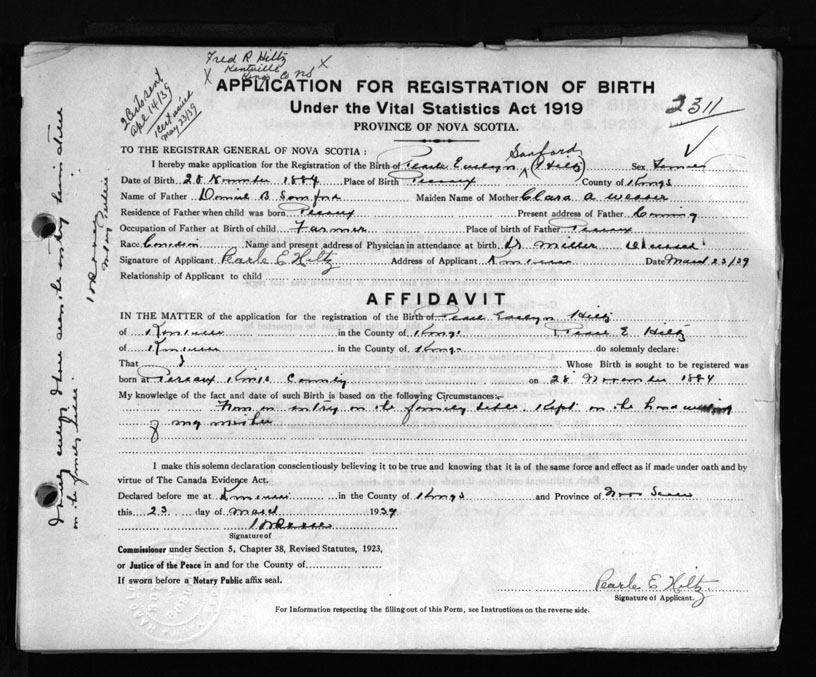 Fred R Hiltz
Kentville
Kings Co NS
X X
2 Certs sent
Apl 14/39
1 cert
May 23/39
APPLICATION FOR REGISTRATION OF BIRTH
Under the Vital Statistics Act 1919
PROVINCE OF NOVA SCOTIA.
2311
TO THE REGISTRAR GENERAL OF NOVA SCOTIA:
Sanford
I hereby make application for the Registration of the Birth of Pearle Evelyn (Hiltz) Sex
Date of Birth 28 November 1884 Place of Birth Pereaux County of Kings
Name of Father B Maiden Name of Mother Clara A
Residence of Father when child was born Pereaux Present address of Father Canning
Occupation of Father at Birth of child Farmer Place of birth of Father Pereaux
Race Canadian Name and present address of Physician in attendance at birth Dr Miller Deceased
Signature of Applicant Pearle E Hiltz Address of Applicant Date March 23/39
Relationship of Applicant to child
AFFIDAVIT
IN THE MATTER of the application for the registration of the Birth of Pearle Evelyn Hiltz
of in the County of Kings Pearle E. Hiltz
of in the County of Kings do solemnly declare:
That I Whose Birth is sought to be registered was
born at Pereaux Kings County on 28 November 1884
My knowledge of the fact and date of such Birth is based on the following Circumstances:-
From an entry in the family bible. Kept in the handwriting
of my mother
I make this solemn declaration conscientiously believing it to be true and knowing that it is of the same force and effect as if made under oath and by
virtue of The Canada Evidence Act.
Declared before me at in the County of Kings and Province of Nova Scotia
this 23 day of March 1939
Signature of
Commissioner under Section 5, Chapter 38, Revised Statutes, 1923,
or Justice of the Peace in and for the County of
If sworn before a Notary Public affix seal.
Pearle E Hiltz
Signature of Applicant.
For Information respecting the filling out of this Form, see Instructions on the reverse side.
I hereby certify I have seen the entry herein
in the family bible.
Notary Public